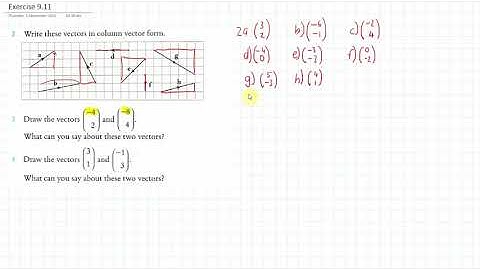 Exercise 9.11
2 Write these vectors in column vector form.
a b c d e f g h
3 Draw the vectors (-4 2) and (-8 4).
What can you say about these two vectors?
4 Draw the vectors (3 1) and (-1 3).
What can you say about these two vectors?
2a (3 2) b) (-4 -1) c) (-2 4)
d) (-4 0) e) (-3 -3) f) (0 -2)
g) (5 -3) h) (4 1)